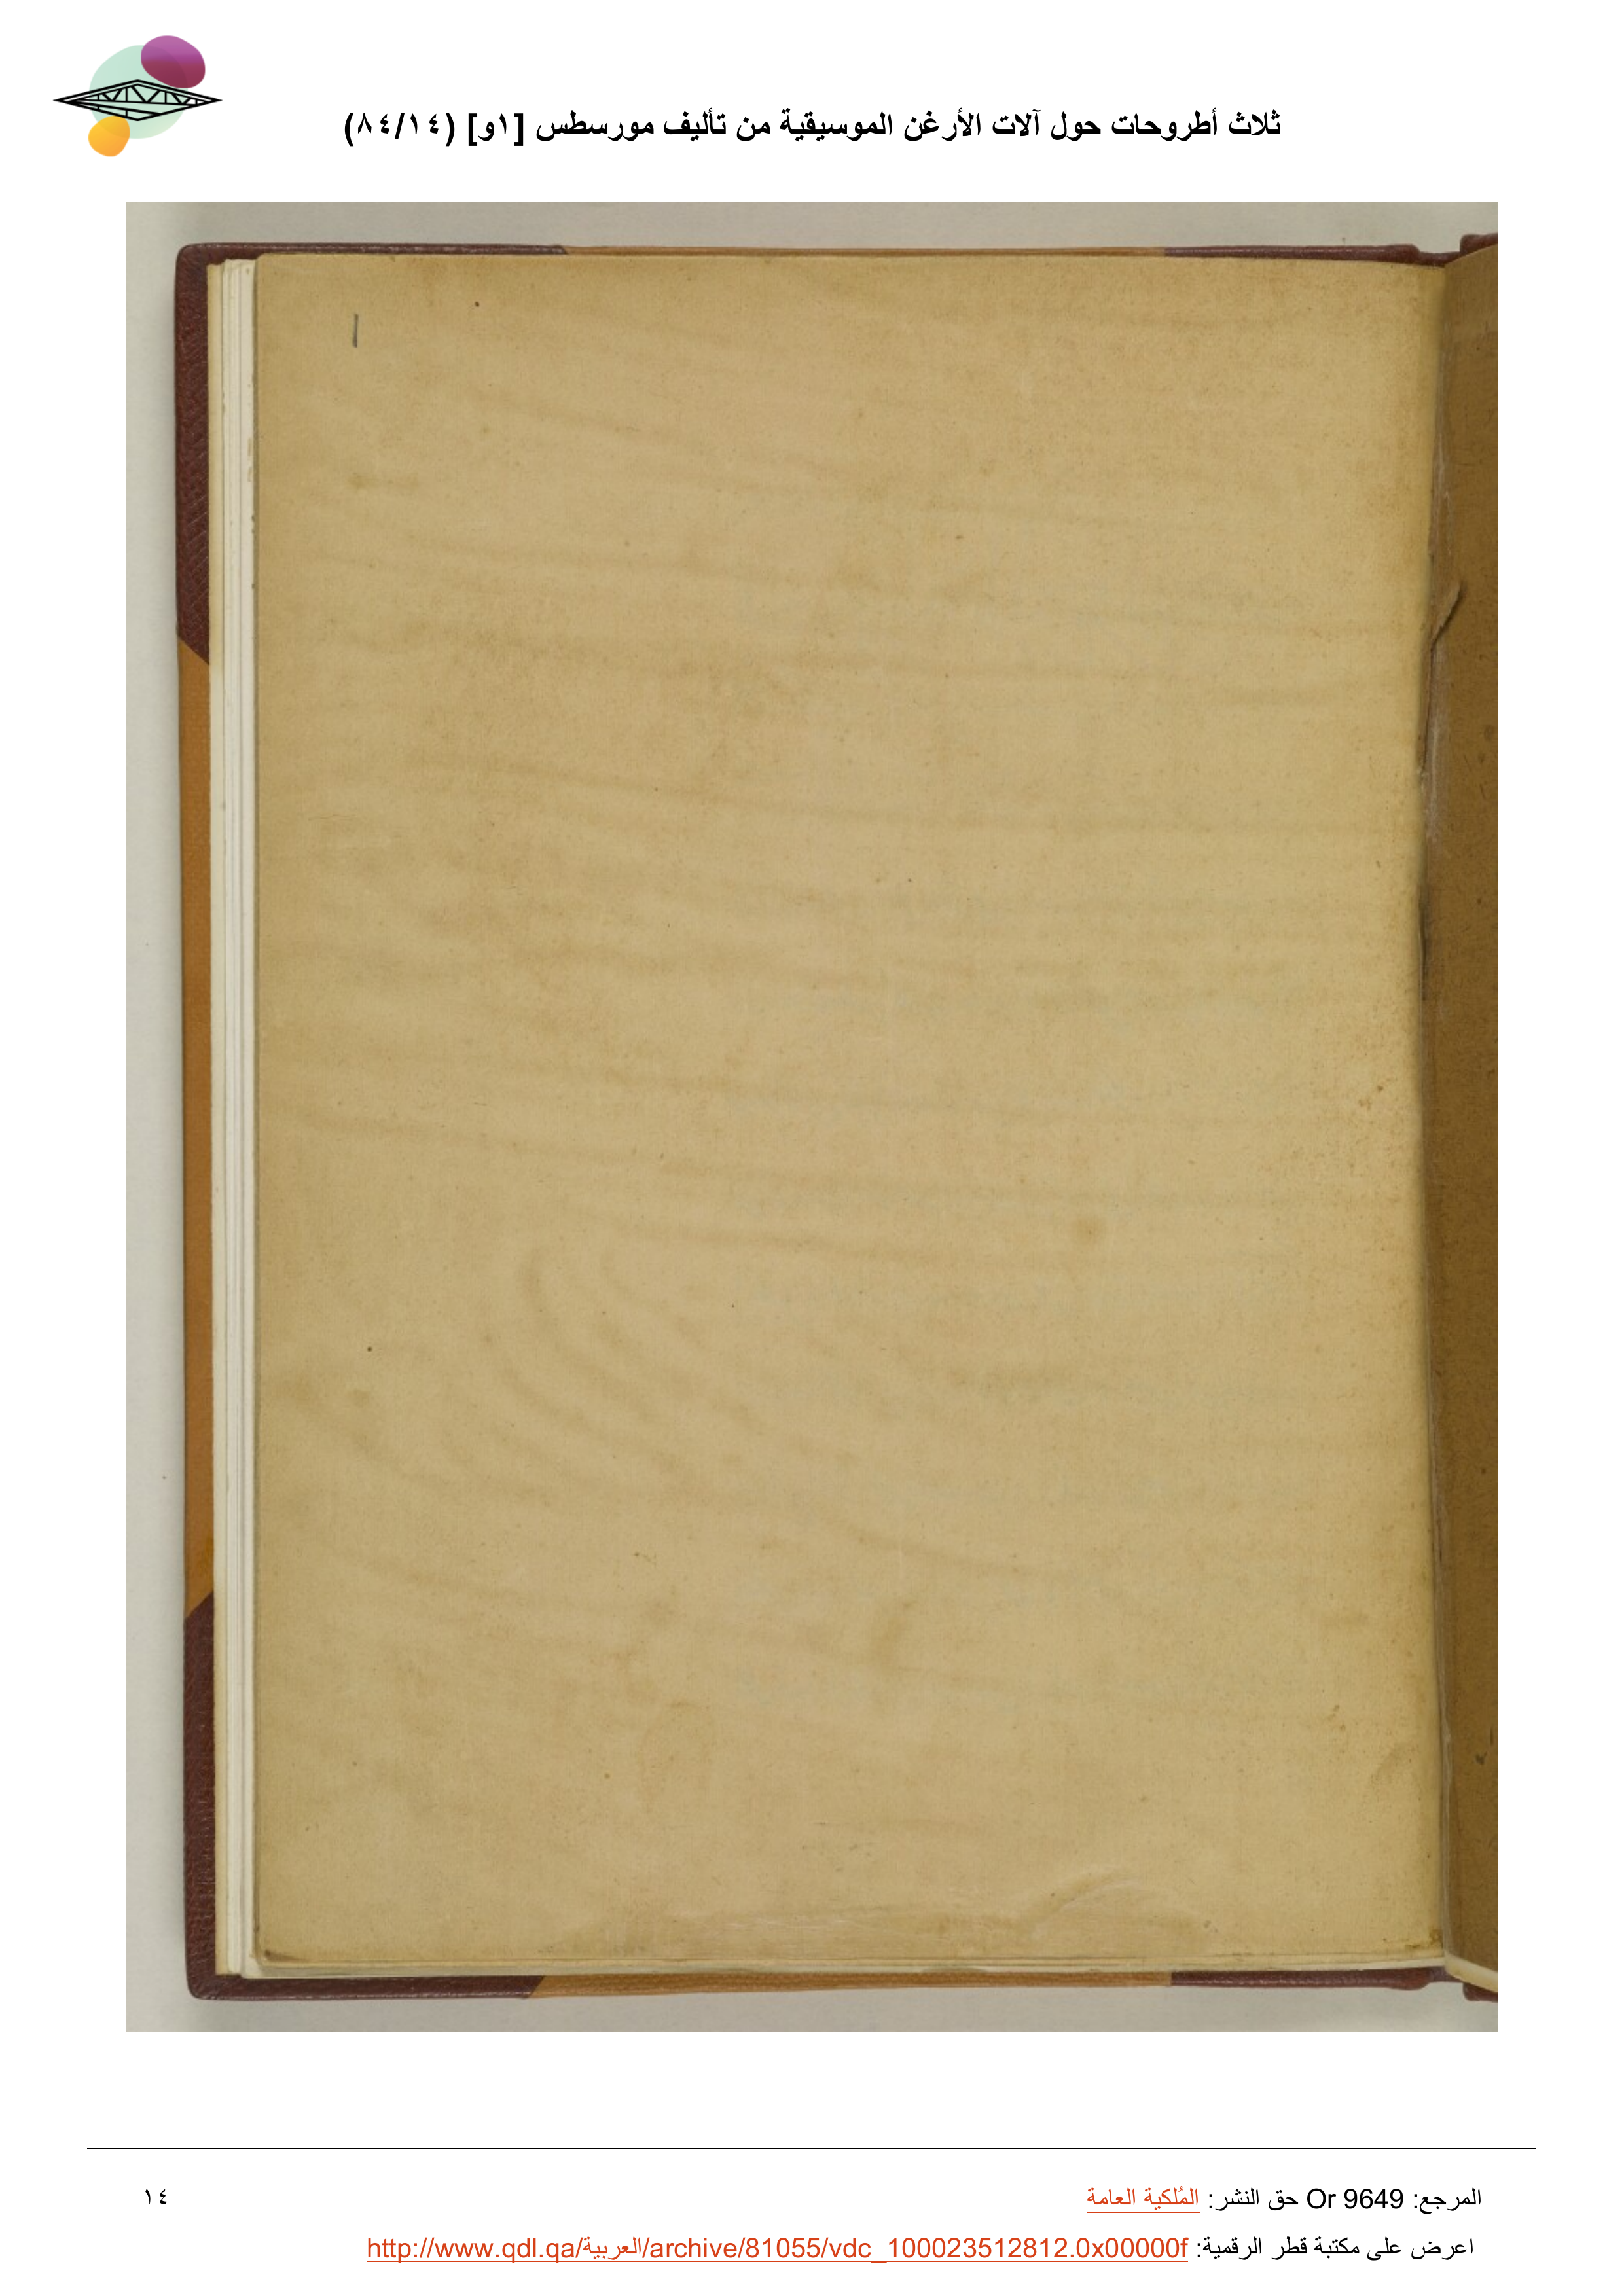 ثلاث أطروحات حول آلات الأرغن الموسيقية من تأليف مورسطس [١و] (٨٤/١٤)
1
المرجع: Or 9649 حق النشر: المُلكية العامة
١٤
اعرض على مكتبة قطر الرقمية: http://www.qdl.qa/العربية/archive/81055/vdc_100023512812.0x00000f